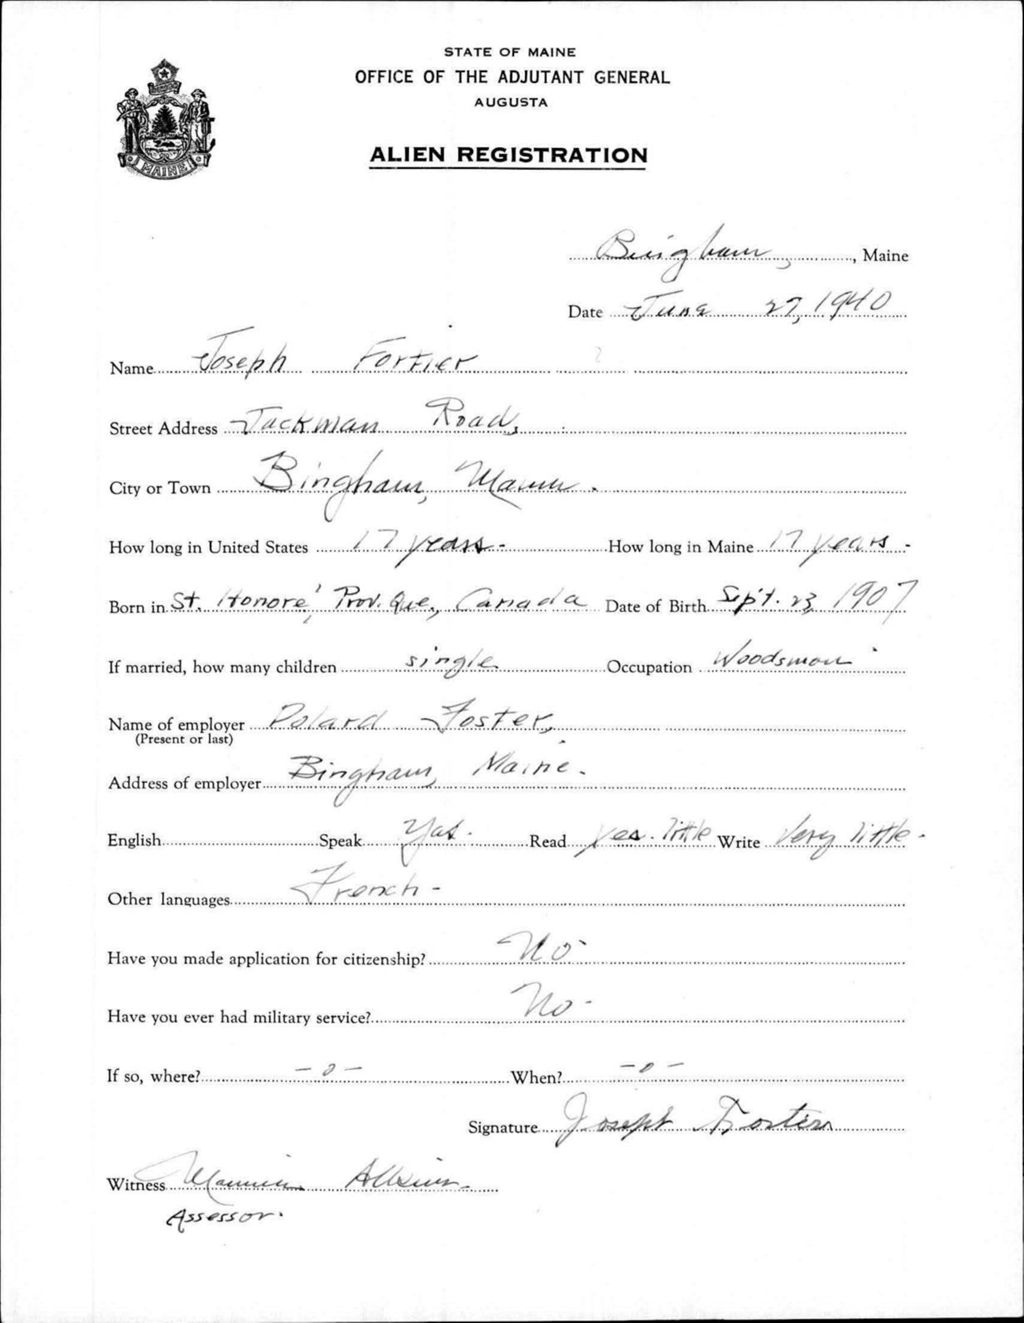 STATE OF MAINE
OFFICE OF THE ADJUTANT GENERAL
AUGUSTA
ALIEN REGISTRATION
MAINE
Bingham, , Maine
Date June 27, 1940
Name Joseph Fortier
Street Address Jackman Road,
City or Town Bingham, Maine.
How long in United States 17 years - How long in Maine 17 years -
Born in St. Honoré Prov. Que., Canada Date of Birth Sept. 23, 1907
If married, how many children single Occupation Woodsman
Name of employer Polard Foster,
(Present or last)
Address of employer Bingham, Maine.
English Speak Yes. Read yes. little Write Very little -
Other languages French -
Have you made application for citizenship? No -
Have you ever had military service? No -
If so, where? - 0 - When? - 0 -
Signature Joseph
Witness
Assessor.